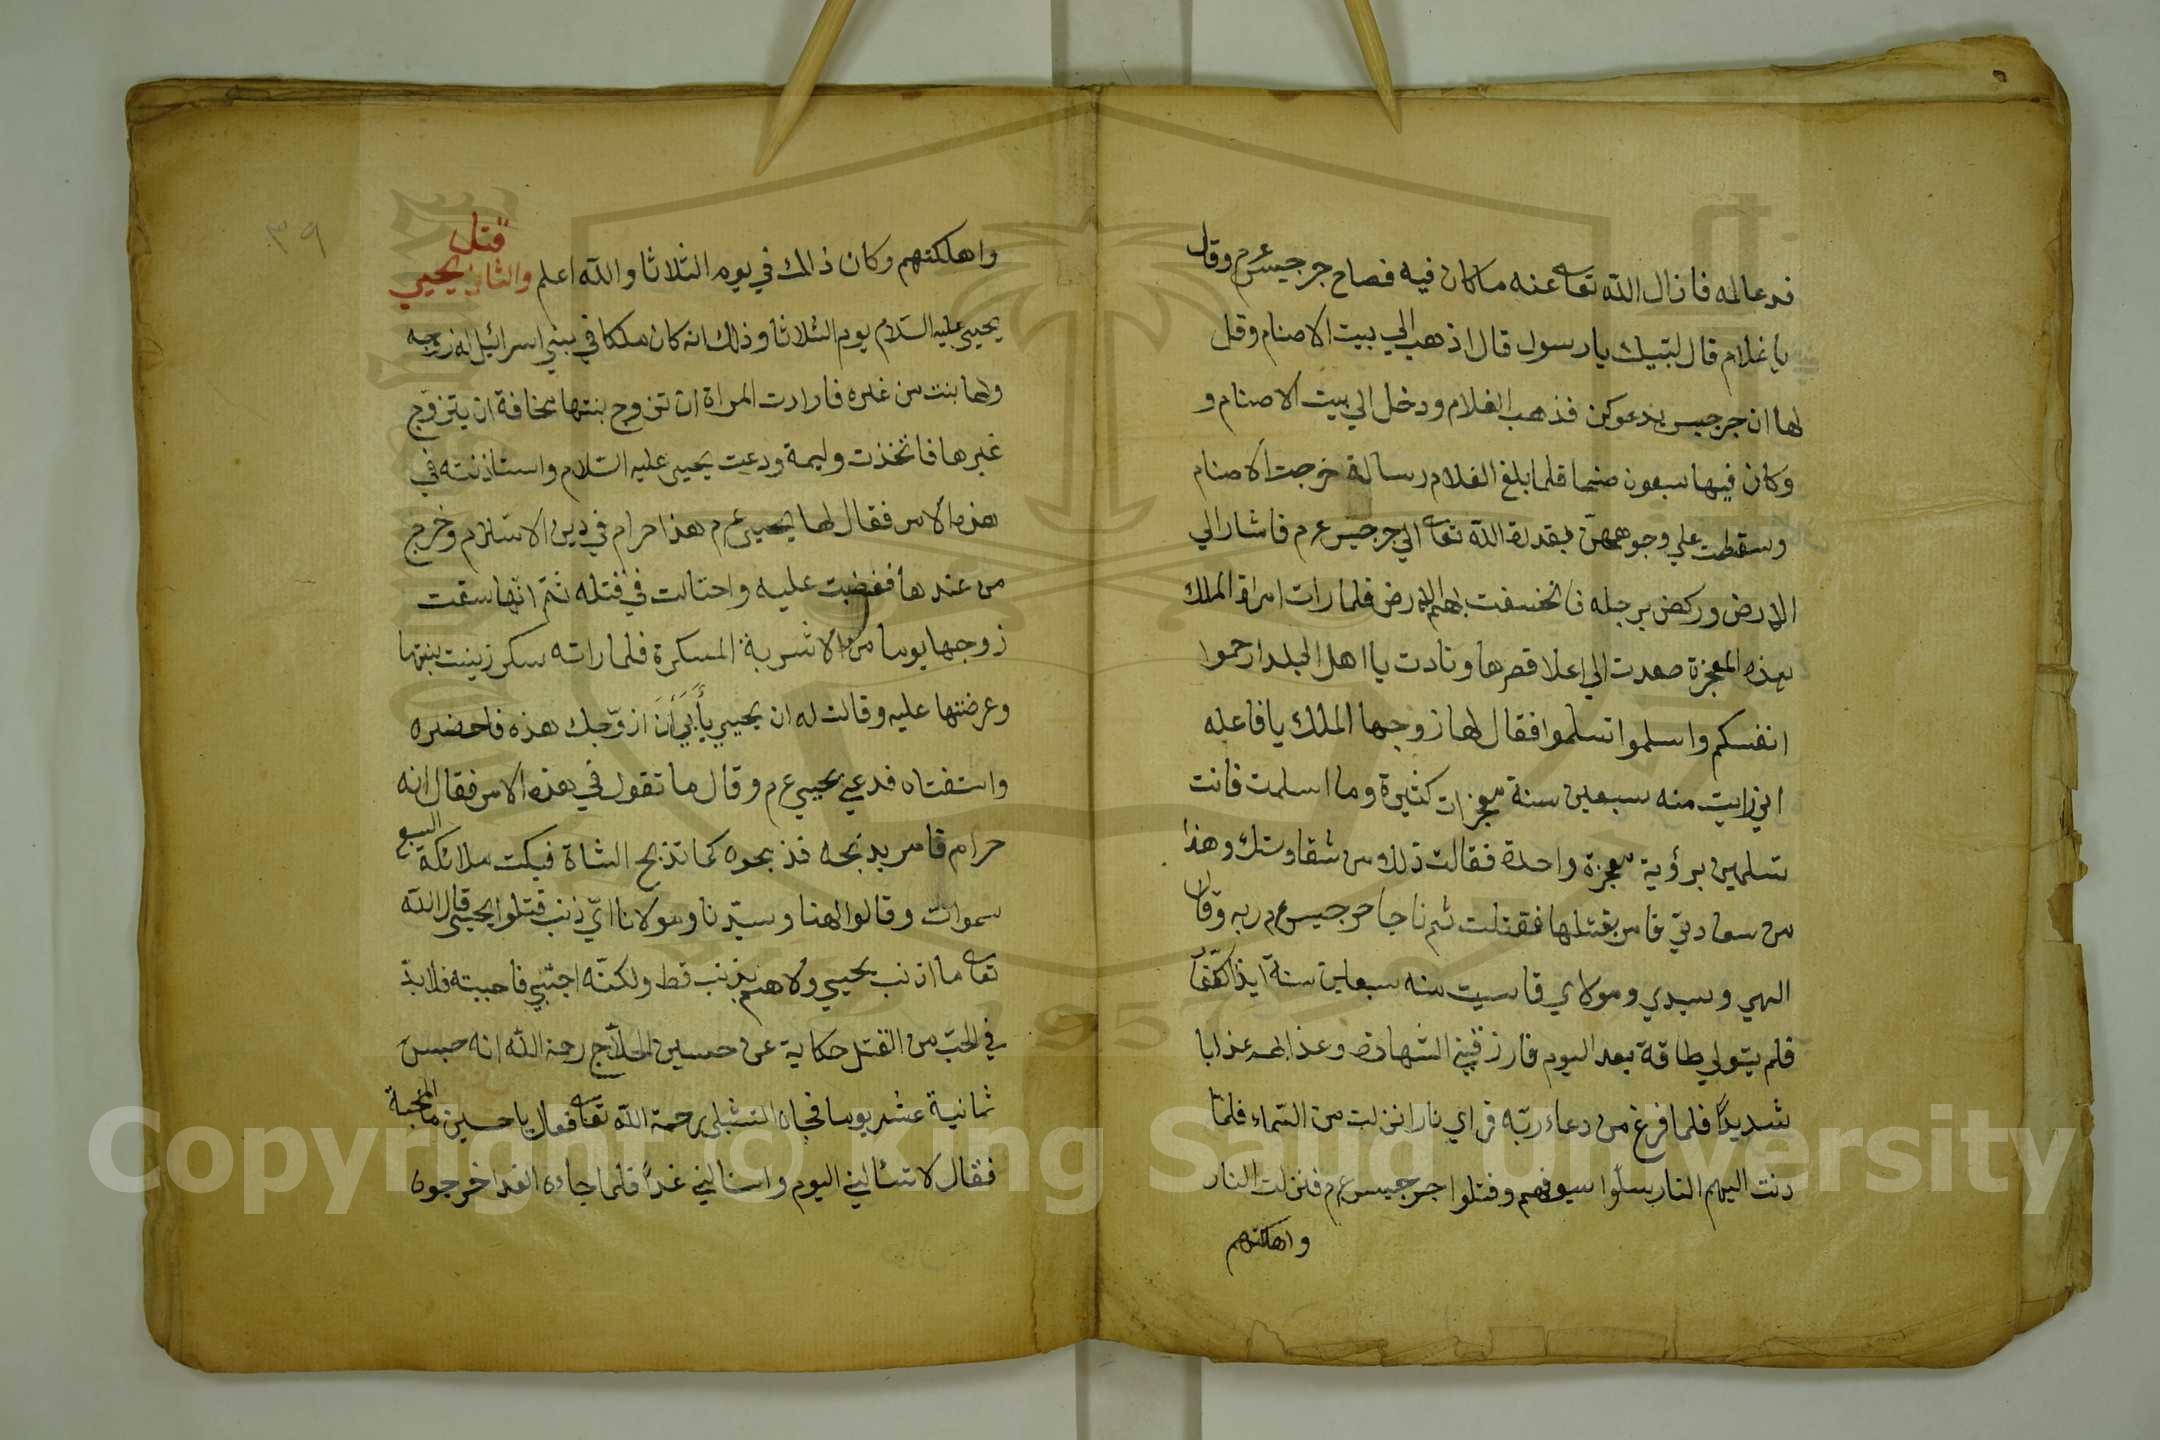 فدعا له فازال الله تعا عنه ما كان فيه فصاح جرجيس عم وقال
يا غلام قال لبتيك يا رسول قال اذهب الي بيت الاصنام وقل
لها ان جرجيس يدعوكن فذهب الغلام ودخل الي بيت الاصنام و
وكان فيها سبعون صنما فلما بلغ الغلام رسالة خرجت الاصنام
وسقطت علي وجوههن بقدرة الله تعا الي جرجيس عم فاشار الي
الارض وركض برجله فانخسفت بهم الارض فلما رات امراة الملك
بهذه المعجزة صعدت الي اعلا قصرها ونادت يا اهل البلد ارحموا
انفسكم واسلموا تسلموا فقال لها زوجها الملك يا فاعله
اني رايت منه سبعين سنة معجزات كثيرة وما اسلمت فانت
تسلمين برؤية معجزة واحدة فقالت ذلك من شقاوتك وهذا
من سعادتي فامر بقتلها فقتلت ثم ناجا جرجيس عم ربه وقال
الهي وسيدي ومولاي قاسيت منه سبعين سنة
فلم يبق لي طاقة بعد اليوم فارزقني الشهادة وعذابهم عذابا
شديدًا فلما فرغ من دعاء ربّه فراي نارا نزلت من السّماء فلمّا
دنت اليهم النار سلّوا سيوفهم وقتلوا جرجيس عم فنزلت النار
واهلكتهم
٣٩
قتل
واهلكتهم وكان ذالك في يوم الثلاثا والله اعلم والثاني يحيي
يحيي عليه السّلام يوم الثلاثا وذلك انه كان ملكا في بني اسرائيل له زوجه
ولها بنت من غيره فارادت المراة ان تزوج بنتها مخافة ان يتزوّج
غيرها فاتخذت وليمة ودعت يحيي عليه السّلام واستاذنته في
هذه الامر فقال لها يحيي عم هذا حرام في دين الاسلام وخرج
من عندها فغضبت عليه واحتالت في قتله ثمّ انها سقت
زوجها يوما من الاشربة المسكرة فلما راته سكر زينت بنتها
وعرضتها عليه وقالت له ان يحيي يأبي أن ازوّجك هذه فاحضره
واستفتاه فدعي يحيي عم وقال ما تقول في هذه الامر فقال انه
حرام فامر بذبحه فذبحوه كما تذبح الشاة فبكت ملائكة السبع
سموات وقالوا الهنا وسيّدنا ومولانا ايّ ذنب قتلوا يحيي قال الله
تعا ما اذنب يحيي ولا هم بذنب قط ولكنّه احبّني فاحببته فلا بدّ
في الحبّ من القتل حكاية عن حسين الحلاّج رحمة الله انه حبس
ثمانية عشر يوما فجاه الشبلي رحمة الله تعا فقال يا حسين ما المحبة
فقال لا تسئالني اليوم واسئالني غدًا فلما جاءه الغد اخرجوه
Copyright © King Saud University
1957